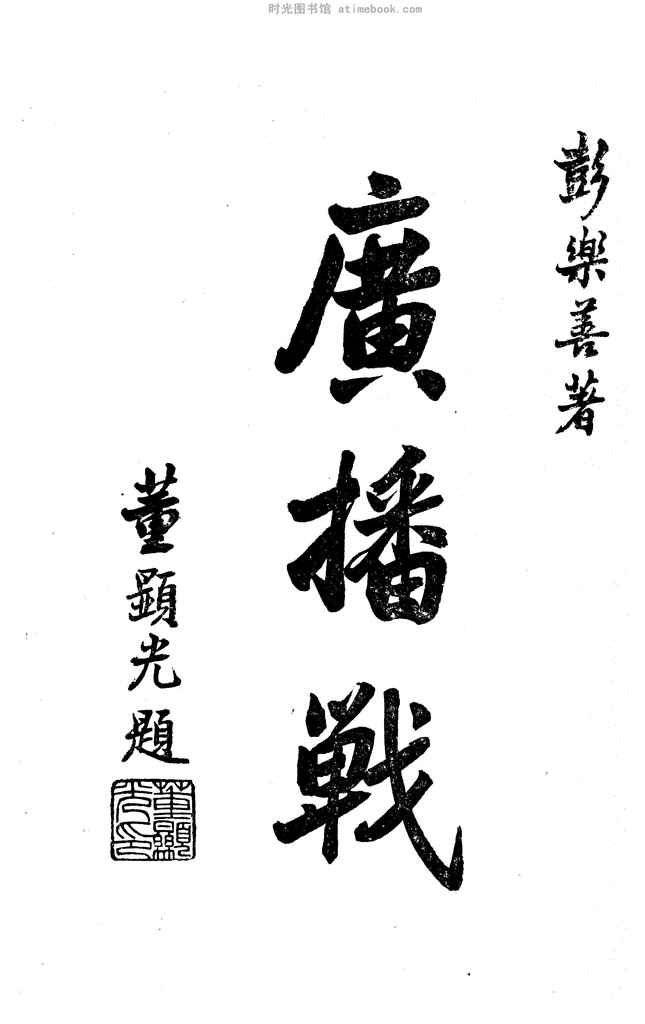 时光图书馆 atimebook.com
彭樂善著
廣播戰
董顯光題
董顯光印